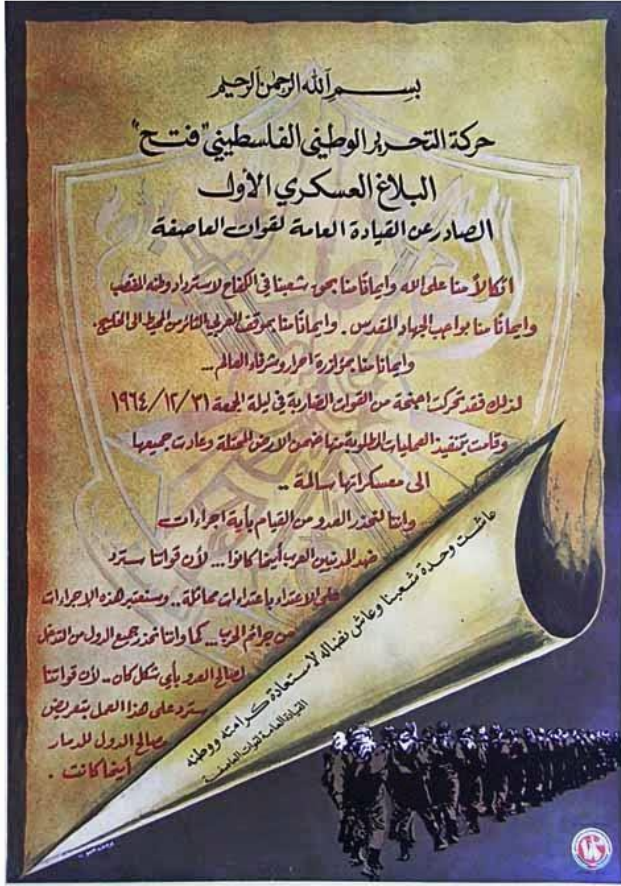 بسم الله الرحمن الرحيم
حركة التحرير الوطني الفلسطيني "فتح"
البلاغ العسكري الأول
الصادر عن القيادة العامة لقوات العاصفة
اتكالاً منا على الله وايمانًا منا بحق شعبنا في الكفاح لاسترداد وطنه المغتصب
وايمانًا منا بواجب الجهاد المقدس . وايمانًا منا بموقف العربي الثائر من المحيط الى الخليج .
وايمانًا منا بمؤازرة احرار وشرفاء العالم ...
لذلك فقد تحركت اجنحة من القوات الضاربة في ليلة الجمعة ٣١/١٢/١٩٦٤
وقامت بتنفيذ العمليات المطلوبة منها ضمن الارض المحتلة وعادت جميعها
الى معسكراتها سالمة ..
واننا لنحذر العدو من القيام بأية اجراءات
ضد المدنيين العرب أينما كانوا ... لأن قواتنا سترد
على الاعتداء باعتداءات مماثلة .. وستعتبر هذه الإجراءات
من جرائم الحرب ... كما واننا نحذر جميع الدول من التدخل
لصالح العدو بأي شكل كان .. لأن قواتنا
سترد على هذا العمل بتعريض
مصالح الدول للدمار
أينما كانت .
عاشت وحدة شعبنا وعاش نضاله لاستعادة كرامته ووطنه
القيادة العامة لقوات العاصفة